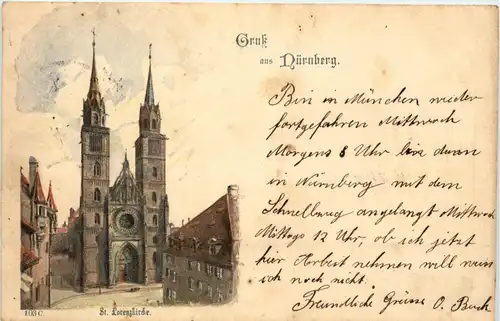 Gruß
aus Nürnberg.
Bin in München wieder
fortgefahren Mittwoch
Morgens 8 Uhr bin dann
in Nürnberg mit dem
Schnellzug angelangt Mittwoch
Mittags 12 Uhr, ob ich jetzt
hier Arbeit nehmen will weis
ich noch nicht.
Freundliche Grüsse O. Buch
103 C. St. Lorenzkirche.